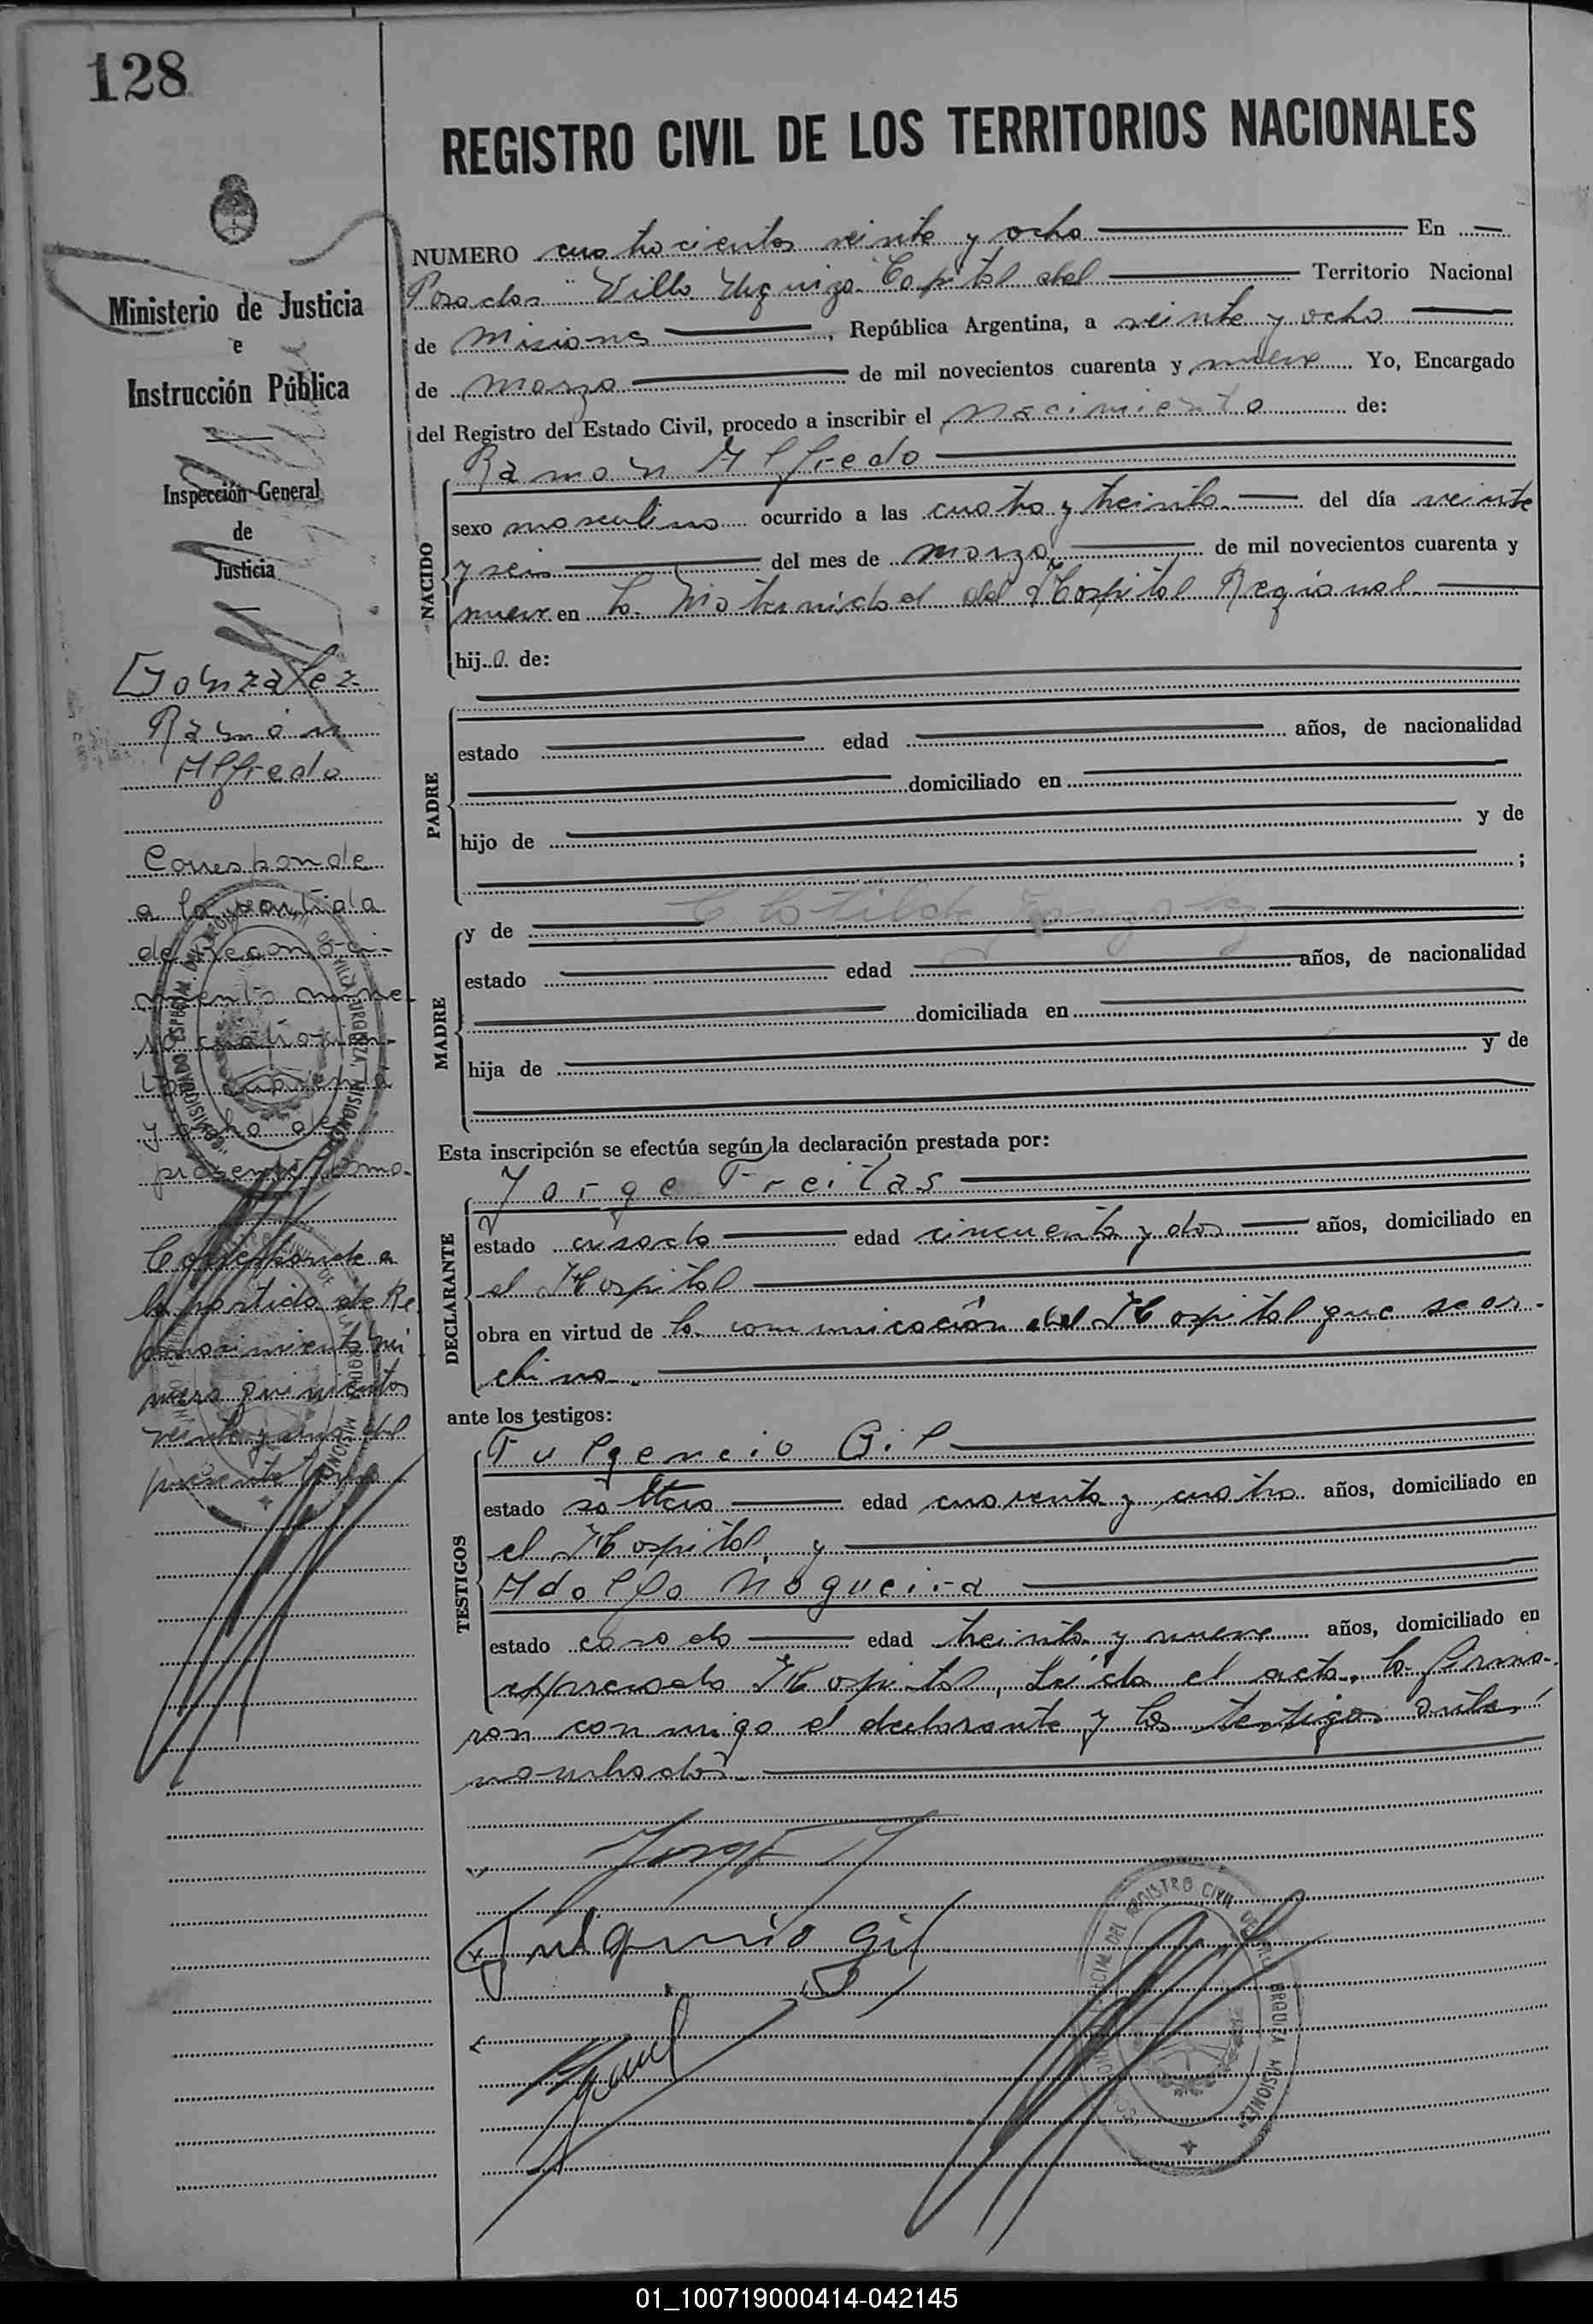 128
REGISTRO CIVIL DE LOS TERRITORIOS NACIONALES
Ministerio de Justicia
e
Instrucción Pública
Inspección General
de
Justicia
Gonzalez
Ramón
Alfredo
Corresponde
a la partida
de reconoci-
miento núme-
ro cuatrocien-
tos cuarenta
y ocho del
presente tomo.
Corresponde a
la partida de Re
conocimiento nú
mero quinientos
veinte y uno del
presente tomo
NUMERO cuatrocientos veinte y ocho En
Posadas "Villa Urquiza" Capital del Territorio Nacional
de Misiones, República Argentina, a veinte y ocho
de marzo de mil novecientos cuarenta y nueve Yo, Encargado
del Registro del Estado Civil, procedo a inscribir el nacimiento de:
Ramón Alfredo
NACIDO
sexo masculino ocurrido a las cuatro y treinta del día veinte
y seis del mes de marzo de mil novecientos cuarenta y
nueve en la Maternidad del Hospital Regional
hijo de:
PADRE
estado edad años, de nacionalidad
domiciliado en
hijo de y de
;
MADRE
y de Clotilde Gonzalez
estado edad años, de nacionalidad
domiciliada en
hija de y de
Esta inscripción se efectúa según la declaración prestada por:
DECLARANTE
Jorge Freitas
estado casado edad cincuenta y dos años, domiciliado en
el Hospital
obra en virtud de la comunicación del Hospital que se ar-
chiva.
ante los testigos:
TESTIGOS
Fulgencio Gil
estado soltero edad cuarenta y cuatro años, domiciliado en
el Hospital, y
Adolfo Nogueira
estado casado edad treinta y nueve años, domiciliado en
expresado Hospital, Leída el acta, la firma-
ron conmigo el declarante y los testigos ante
nombrados.
Jorge F
Fulgencio Gil
DEL REGISTRO CIVIL DE VILLA URQUIZA MISIONES
01_100719000414-042145